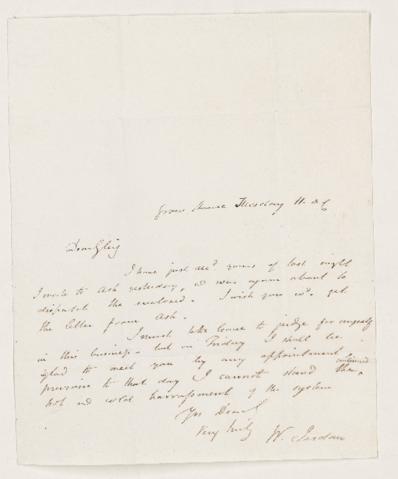 Grove House Tuesday 11 o'C
Dear Gleig
I have just recd yours of last night
I wrote to Ash yesterday, & were again about to
dispatch the enclosed. I wish you wd. get
the letter from Ash.
I must take time to judge for myself
in this business. but on Friday I shall be
glad to meet you by any appointment,
previous to that day I cannot stand the continued
hot and cold harrassment of the system
Yrs Dear G
Very truly
W. Jerdan